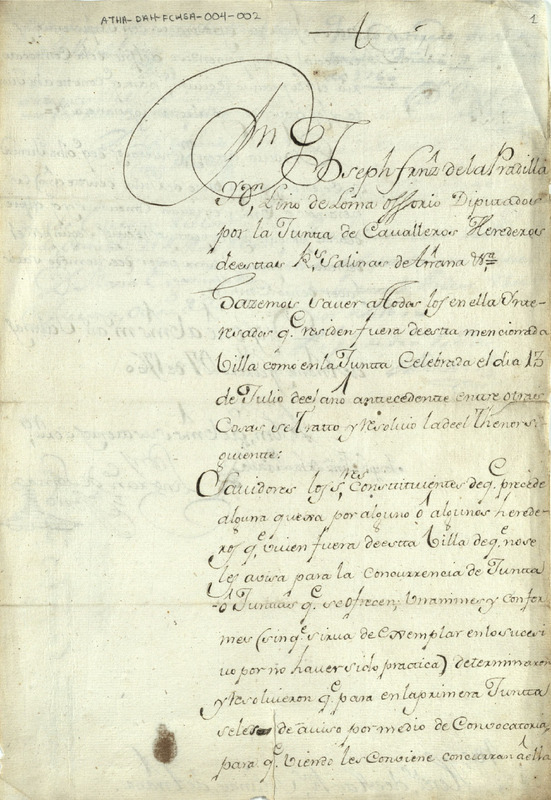 ATHA-DAH-FCHSA-004-002
1
Dn Joseph frnz de la Pradilla
y Dn Lino de Loma Ossorio Diputados
por la Juntta de Cavalleros Herederos
de esttas Rs Salinas de Añana &a
Hazemos saver a ttodos los en ella Ynte-
resados q.e residen fuera de estta mencionada
Villa como en la Juntta Celebrada el dia 13
de Julio del año antecedente entre otras
Cosas se tratto y resolvio la de el thenor si-
guiente:
Savidores los s.res Constituientes de q.e precede
alguna quexa por alguno ô algunos herede-
ros q.e viven fuera de estta Villa de q.e no se
les avisa para la concurrencia de Juntta
o Junttas q.e se ofrecen; Unanimes y confor-
mes (sin q.e sirva de Exemplar en lo sucesi
vo por no haver sido practica) determinaron
y resolvieron q.e para en la primera Juntta
se les de aviso por medio de Convocatoria,
para q.e viendo les Conviene concurran a ella